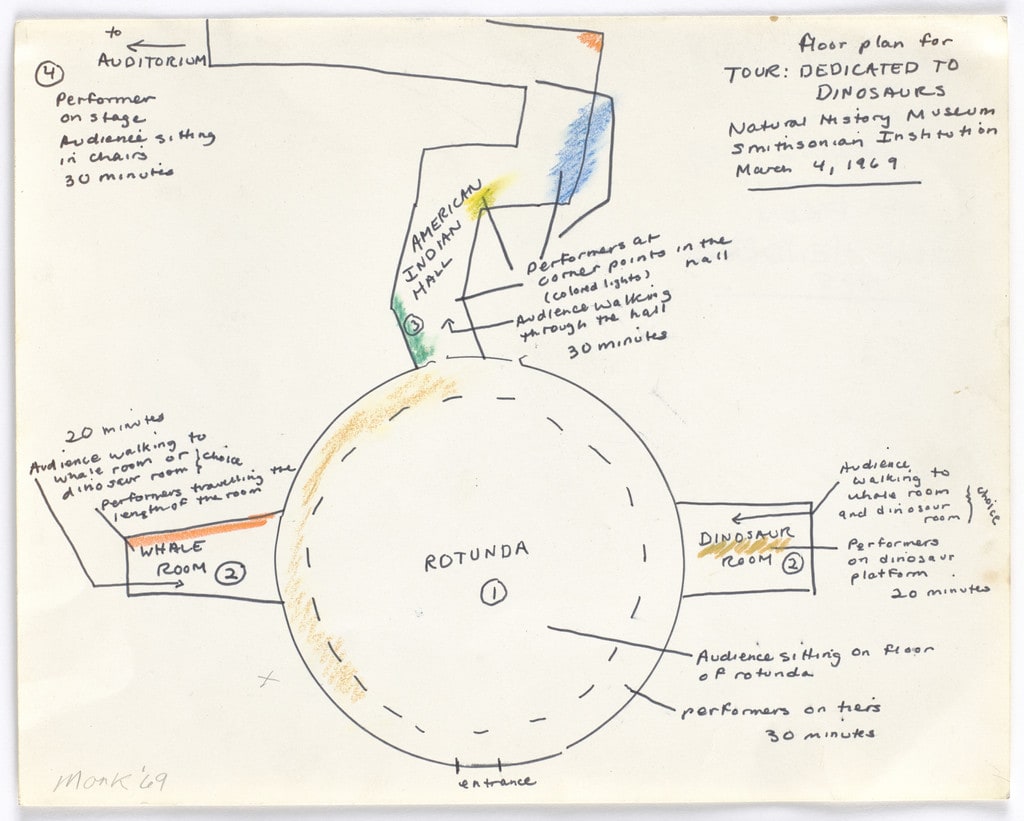 floor plan for
TOUR: DEDICATED TO
DINOSAURS
Natural History Museum
Smithsonian Institution
March 4, 1969
to
AUDITORIUM
4
Performer
on stage
Audience sitting
in chairs
30 minutes
AMERICAN
INDIAN
HALL
3
Performers at
corner points in the
hall
(colored lights)
Audience walking
through the hall
30 minutes
20 minutes
Audience walking to
whale room or
dinosaur room
choice
Performers travelling the
length of the room
WHALE
ROOM 2
ROTUNDA
1
DINOSAUR
ROOM 2
Audience
walking to
whale room
and dinosaur
room
choice
Performers
on dinosaur
platform
20 minutes
Audience sitting on floor
of rotunda
performers on tiers
30 minutes
entrance
Monk '69